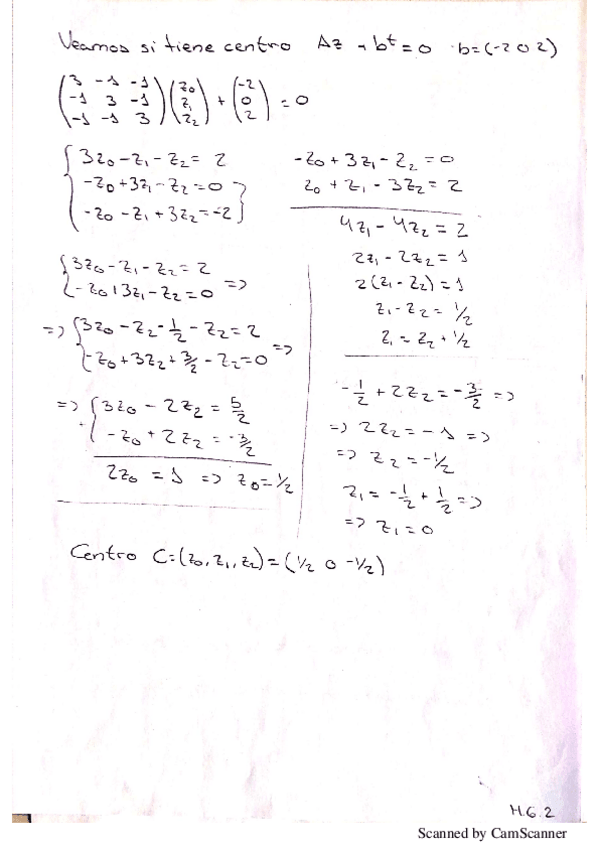 Veamos si tiene centro Az + bᵗ = 0 b = (-2 0 2)
(3 -1 -1 / -1 3 -1 / -1 -1 3) (z₀ / z₁ / z₂) + (-2 / 0 / 2) = 0
{ 3z₀ - z₁ - z₂ = 2
-z₀ + 3z₁ - z₂ = 0
-z₀ - z₁ + 3z₂ = -2 }
-z₀ + 3z₁ - z₂ = 0
z₀ + z₁ - 3z₂ = 2
4z₁ - 4z₂ = 2
2z₁ - 2z₂ = 1
2(z₁ - z₂) = 1
z₁ - z₂ = 1/2
z₁ = z₂ + 1/2
{ 3z₀ - z₁ - z₂ = 2
-z₀ + 3z₁ - z₂ = 0 =>
=> { 3z₀ - z₂ - 1/2 - z₂ = 2
-z₀ + 3z₂ + 3/2 - z₂ = 0 =>
=> { 3z₀ - 2z₂ = 5/2
-z₀ + 2z₂ = -3/2
2z₀ = 1 => z₀ = 1/2
-1/2 + 2z₂ = -3/2 =>
=> 2z₂ = -1 =>
=> z₂ = -1/2
z₁ = -1/2 + 1/2 =>
=> z₁ = 0
Centro C = (z₀, z₁, z₂) = (1/2 0 -1/2)
H.6.2
Scanned by CamScanner